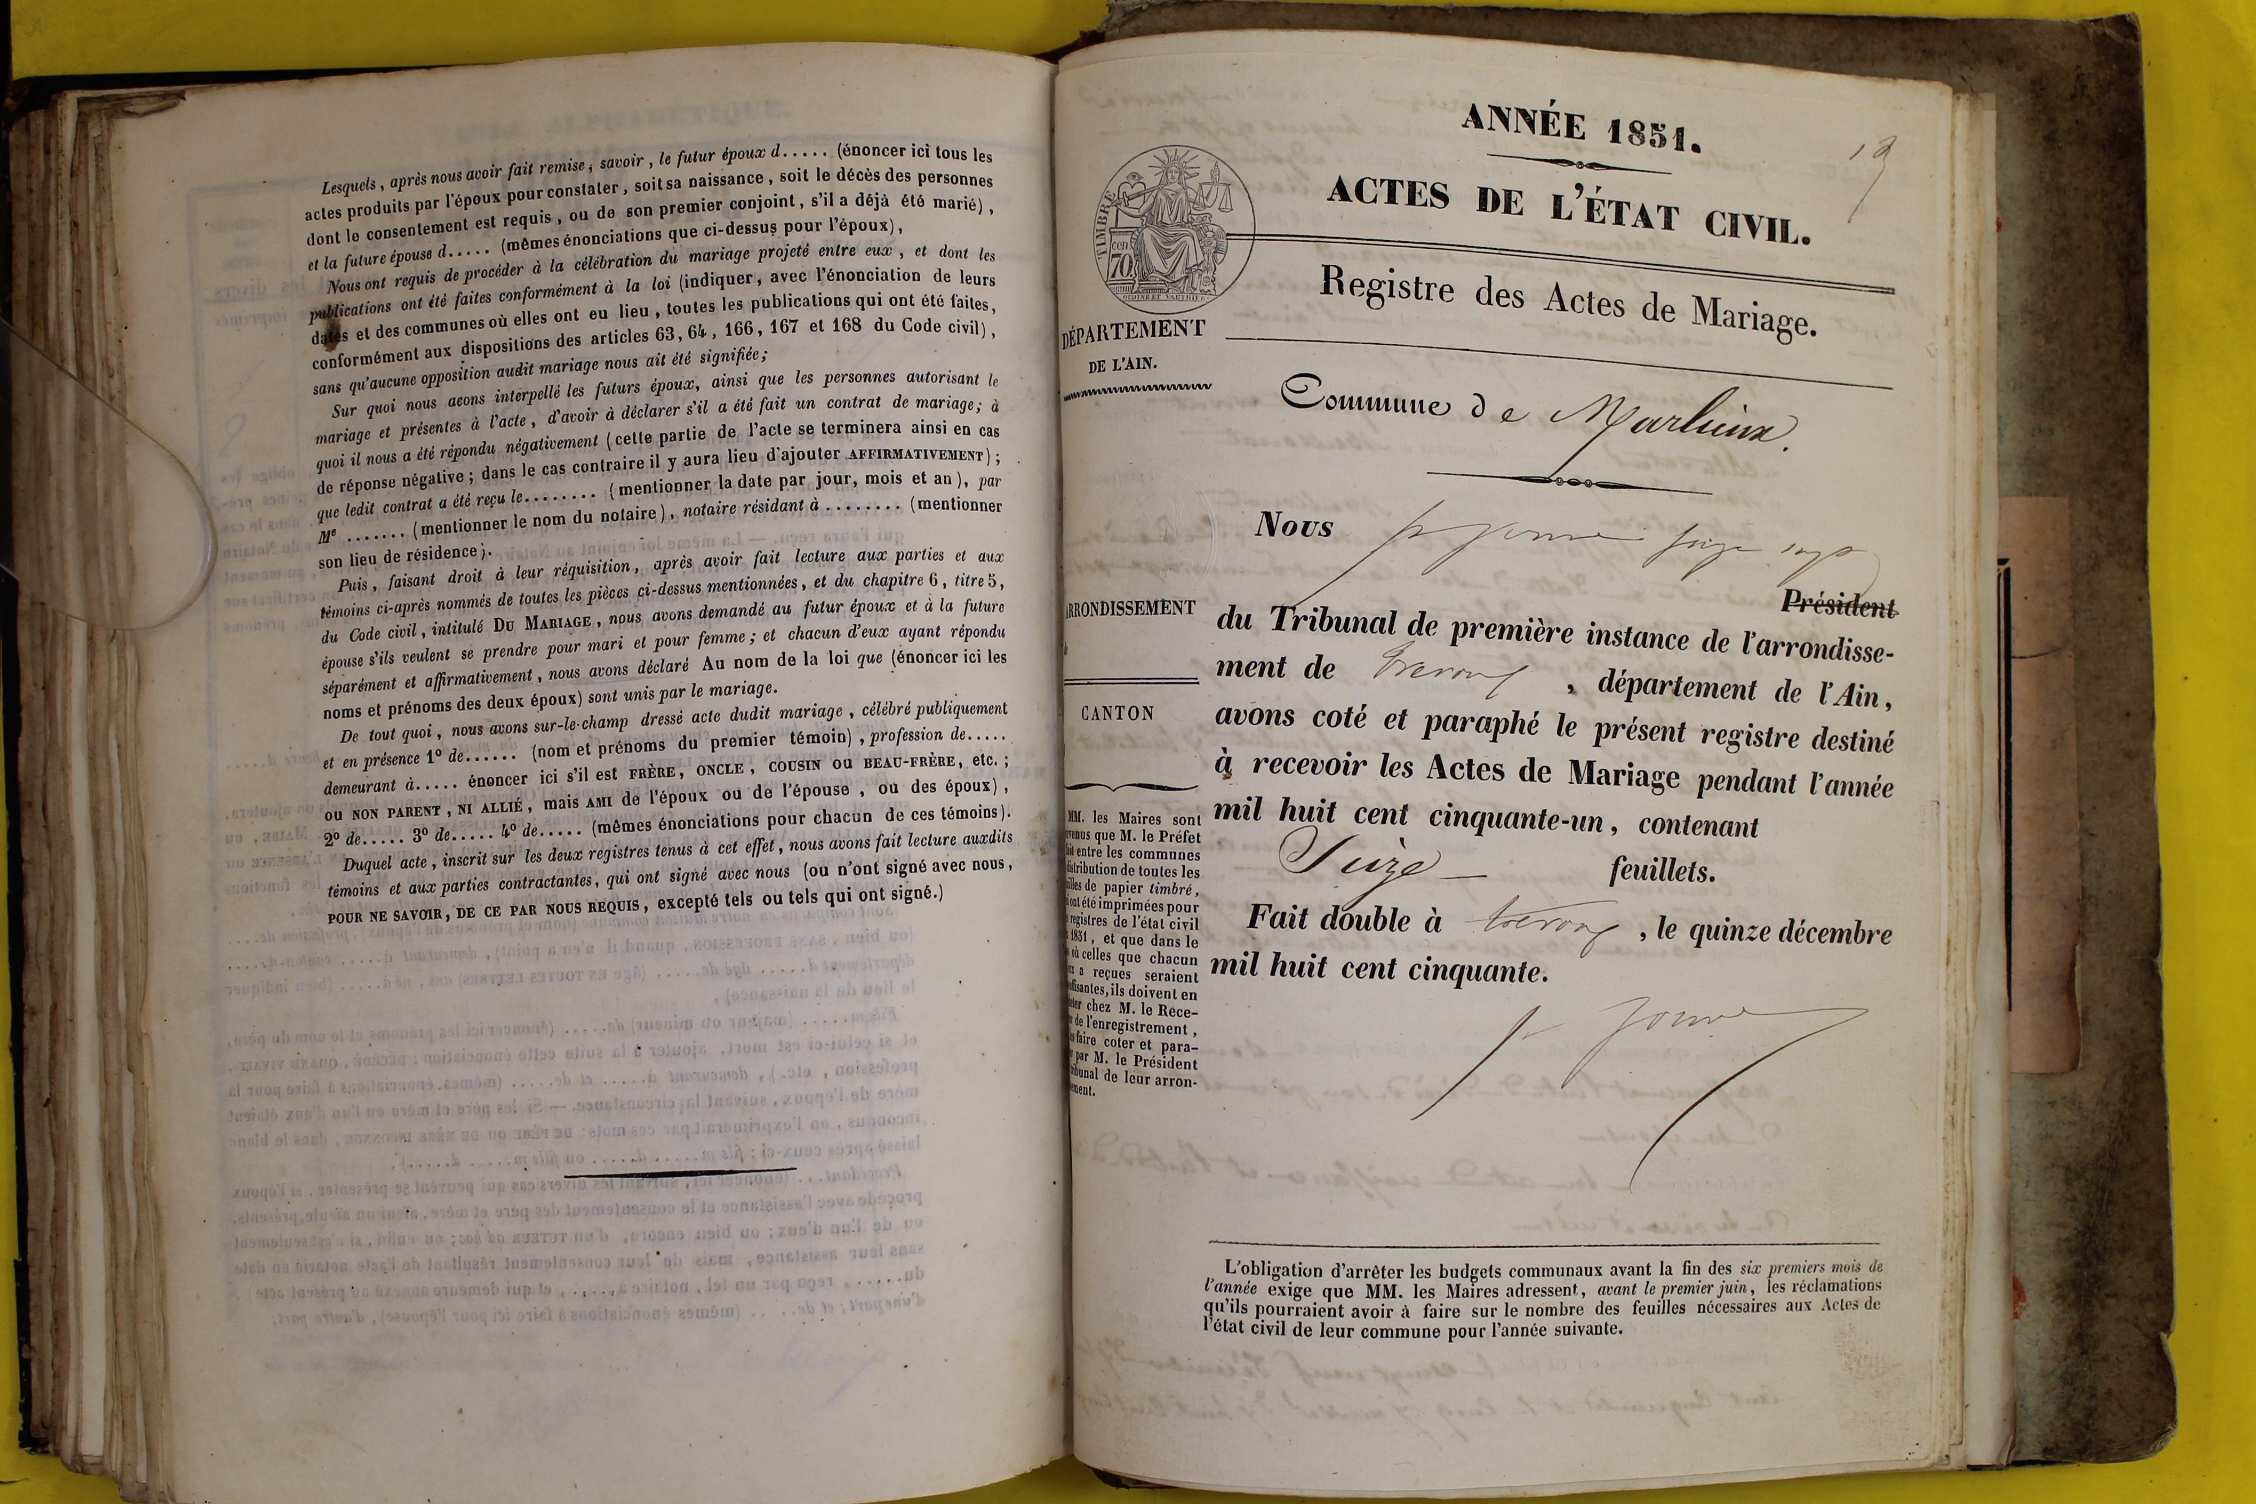 Lesquels, après nous avoir fait remise, savoir, le futur époux d..... (énoncer ici tous les
actes produits par l'époux pour constater, soit sa naissance, soit le décès des personnes
dont le consentement est requis, ou de son premier conjoint, s'il a déjà été marié),
et la future épouse d..... (mêmes énonciations que ci-dessus pour l'époux),
Nous ont requis de procéder à la célébration du mariage projeté entre eux, et dont les
publications ont été faites conformément à la loi (indiquer, avec l'énonciation de leurs
dates et des communes où elles ont eu lieu, toutes les publications qui ont été faites,
conformément aux dispositions des articles 63, 64, 166, 167 et 168 du Code civil),
sans qu'aucune opposition audit mariage nous ait été signifiée;
Sur quoi nous aeons interpellé les futurs époux, ainsi que les personnes autorisant le
mariage et présentes à l'acte, d'avoir à déclarer s'il a été fait un contrat de mariage; à
quoi il nous a été répondu négativement (cette partie de l'acte se terminera ainsi en cas
de réponse négative; dans le cas contraire il y aura lieu d'ajouter AFFIRMATIVEMENT);
que ledit contrat a été reçu le........ (mentionner la date par jour, mois et an), par
Me ....... (mentionner le nom du notaire), notaire résidant à ........ (mentionner
son lieu de résidence).
Puis, faisant droit à leur réquisition, après avoir fait lecture aux parties et aux
témoins ci-après nommés de toutes les pièces ci-dessus mentionnées, et du chapitre 6, titre 5,
du Code civil, intitulé DU MARIAGE, nous avons demandé au futur époux et à la future
épouse s'ils veulent se prendre pour mari et pour femme; et chacun d'eux ayant répondu
séparément et affirmativement, nous avons déclaré Au nom de la loi que (énoncer ici les
noms et prénoms des deux époux) sont unis par le mariage.
De tout quoi, nous avons sur-le-champ dressé acte dudit mariage, célébré publiquement
et en présence 1º de...... (nom et prénoms du premier témoin), profession de.....
demeurant à..... énoncer ici s'il est FRÈRE, ONCLE, COUSIN OU BEAU-FRÈRE, etc.;
OU NON PARENT, NI ALLIÉ, mais AMI de l'époux ou de l'épouse, ou des époux),
2º de..... 3º de..... 4º de..... (mêmes énonciations pour chacun de ces témoins).
Duquel acte, inscrit sur les deux registres tenus à cet effet, nous avons fait lecture auxdits
témoins et aux parties contractantes, qui ont signé avec nous (ou n'ont signé avec nous,
POUR NE SAVOIR, DE CE PAR NOUS REQUIS, excepté tels ou tels qui ont signé.)
ANNÉE 1851.
19
ACTES DE L'ÉTAT CIVIL.
TIMBRE
cen
70.
Registre des Actes de Mariage.
DÉPARTEMENT
DE L'AIN.
Commune de Marlieux.
Nous p jouve juge sup
Président
ARRONDISSEMENT
du Tribunal de première instance de l'arrondisse-
ment de Trevoux, département de l'Ain,
CANTON
avons coté et paraphé le présent registre destiné
à recevoir les Actes de Mariage pendant l'année
mil huit cent cinquante-un, contenant
Seize feuillets.
Fait double à trevoux, le quinze décembre
mil huit cent cinquante.
p jouve
MM. les Maires sont
venus que M. le Préfet
fait entre les communes
distribution de toutes les
uilles de papier timbré,
i ont été imprimées pour
s registres de l'état civil
1851, et que dans le
où celles que chacun
a reçues seraient
uffisantes, ils doivent en
eter chez M. le Rece-
de l'enregistrement,
les faire coter et para-
par M. le Président
ribunal de leur arron-
ement.
L'obligation d'arrêter les budgets communaux avant la fin des six premiers mois de
l'année exige que MM. les Maires adressent, avant le premier juin, les réclamations
qu'ils pourraient avoir à faire sur le nombre des feuilles nécessaires aux Actes de
l'état civil de leur commune pour l'année suivante.